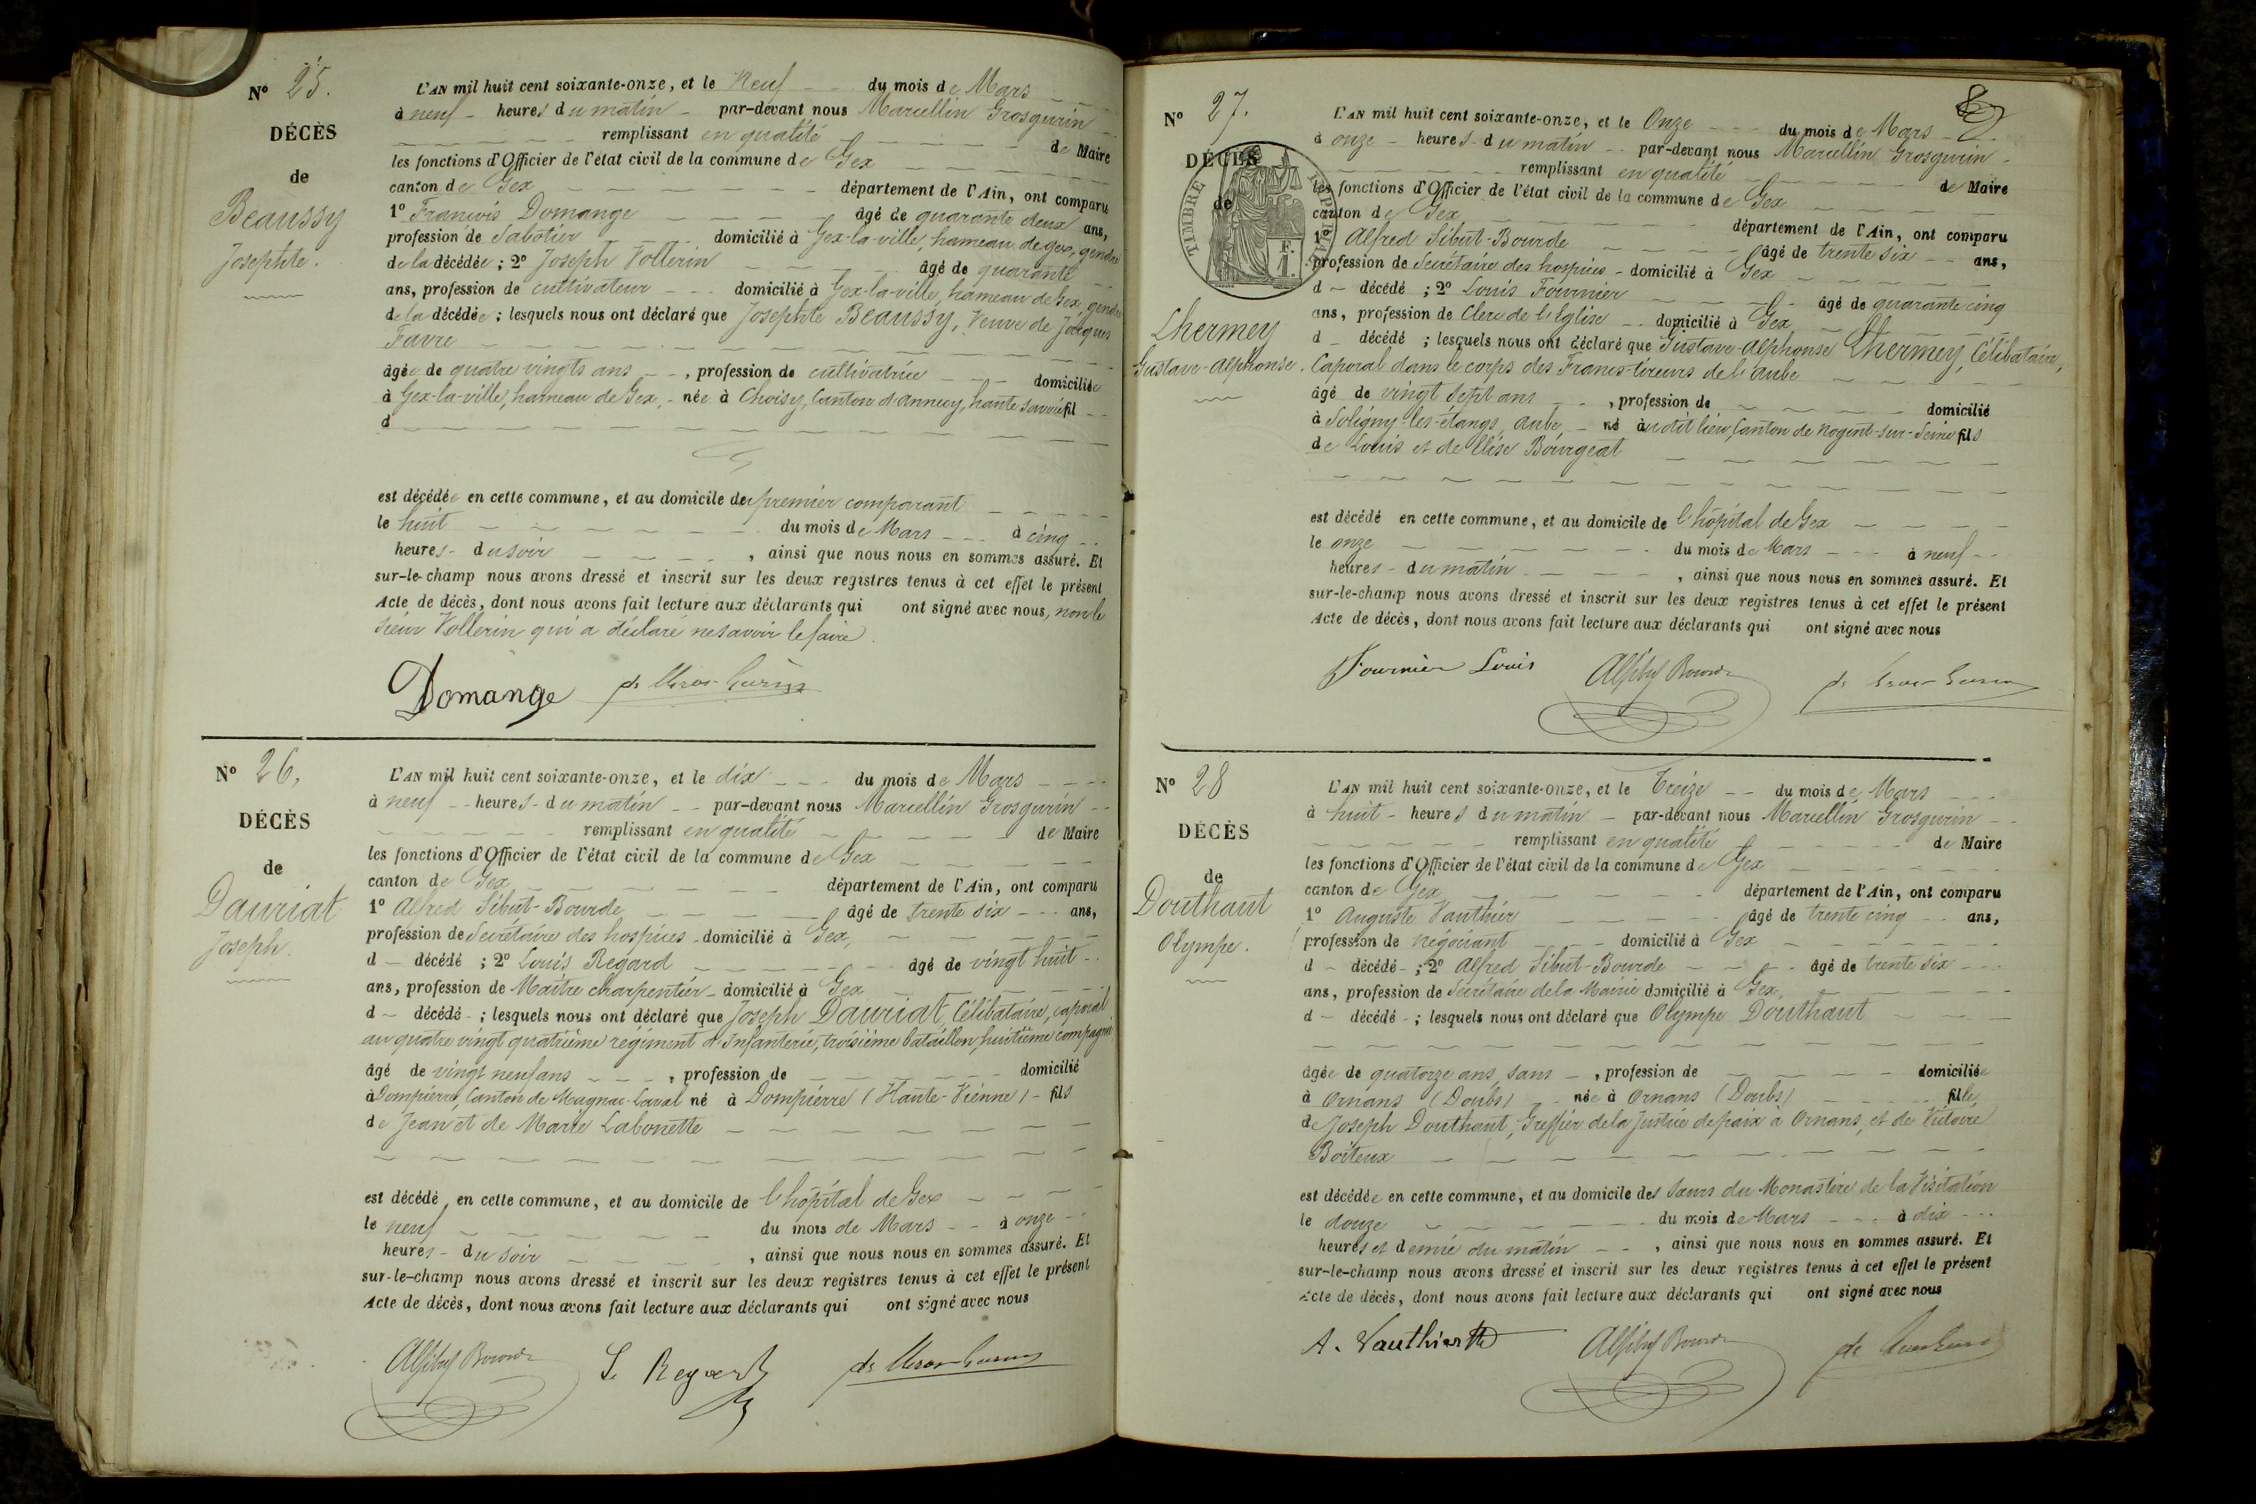 Nº 25.
DÉCÈS
de
Beaussy
Josephte.
L'AN mil huit cent soixante-onze, et le Neuf du mois de Mars
à neuf heures du matin par-devant nous Marcellin Grosgurin
remplissant en qualité de Maire
les fonctions d'Officier de l'état civil de la commune de Gex
canton de Gex département de l'Ain, ont comparu
1º François Domange âgé de quarante deux ans,
profession de Sabotier domicilié à Gex-la-ville, hameau de Gex, gendre
de la décédée ; 2º Joseph Vollerin âgé de quarante
ans, profession de cultivateur domicilié à Gex-la-ville, hameau de Gex, gendre
de la décédée ; lesquels nous ont déclaré que Josephte Beaussy, Veuve de Jacques
Favre
âgée de quatre vingts ans , profession de cultivatrice domiciliée
à Gex-la-ville, hameau de Gex, née à Choisy, Canton d'annecy, haute Savoie fil
d
est décédée en cette commune, et au domicile du premier comparant
le huit du mois de Mars à cinq
heures du soir , ainsi que nous nous en sommes assuré. Et
sur-le-champ nous avons dressé et inscrit sur les deux registres tenus à cet effet le présent
Acte de décès, dont nous avons fait lecture aux déclarants qui ont signé avec nous, non le
sieur Vollerin qui a déclaré ne savoir le faire.
Domange
Nº 26,
DÉCÈS
de
Dauriat
Joseph.
L'AN mil huit cent soixante-onze, et le dix du mois de Mars
à neuf heures du matin par-devant nous Marcellin Grosgurin
remplissant en qualité de Maire
les fonctions d'Officier de l'état civil de la commune de Gex
canton de Gex département de l'Ain, ont comparu
1º Alfred Sibut-Bourde âgé de trente six ans,
profession de Secrétaire des hospices domicilié à Gex,
d décédé ; 2º Louis Regard âgé de vingt huit
ans, profession de Maître charpentier domicilié à Gex
d décédé ; lesquels nous ont déclaré que Joseph Dauriat, Célibataire, caporal
au quatre vingt quatrième régiment d'Infanterie, troisième bataillon, huitième compagnie
âgé de vingt neuf ans , profession de domicilié
à Dompierre, Canton de Magnac-Laval né à Dompierre (Haute-Vienne) fils
de Jean et de Marie Labonette
est décédé en cette commune, et au domicile de l'hôpital de Gex
le neuf du mois de Mars à onze
heures du soir , ainsi que nous nous en sommes assuré. Et
sur-le-champ nous avons dressé et inscrit sur les deux registres tenus à cet effet le présent
Acte de décès, dont nous avons fait lecture aux déclarants qui ont signé avec nous
Bourde L. Regard
Nº 27.
DÉCÈS
de
TIMBRE IMPÉRIAL
Lhermey
Gustave-Alphonse.
L'AN mil huit cent soixante-onze, et le Onze du mois de Mars
à onze heures du matin par-devant nous Marcellin Grosgurin
remplissant en qualité de Maire
les fonctions d'Officier de l'état civil de la commune de Gex
canton de Gex département de l'Ain, ont comparu
1º Alfred Sibut-Bourde âgé de trente six ans,
profession de Secrétaire des hospices domicilié à Gex
d décédé ; 2º Louis Fournier âgé de quarante cinq
ans, profession de Clerc de l'Eglise domicilié à Gex
d décédé ; lesquels nous ont déclaré que Gustave-Alphonse Lhermey, Célibataire,
Caporal dans le corps des Francs-tireurs de l'aube
âgé de vingt sept ans , profession de domicilié
à Soligny-les-étangs, aube né au dit lieu, Canton de Nogent-sur-Seine fils
de Louis et de Elise Bourgeat
est décédé en cette commune, et au domicile de l'hôpital de Gex
le onze du mois de Mars à neuf
heures du matin , ainsi que nous nous en sommes assuré. Et
sur-le-champ nous avons dressé et inscrit sur les deux registres tenus à cet effet le présent
Acte de décès, dont nous avons fait lecture aux déclarants qui ont signé avec nous
Fournier Louis Bourde
Nº 28
DÉCÈS
de
Douthaut
Olympe.
L'AN mil huit cent soixante-onze, et le Treize du mois de Mars
à huit heures du matin par-devant nous Marcellin Grosgurin
remplissant en qualité de Maire
les fonctions d'Officier de l'état civil de la commune de Gex
canton de Gex département de l'Ain, ont comparu
1º Auguste Vauthier âgé de trente cinq ans,
profession de négociant domicilié à Gex
d décédé ; 2º Alfred Sibut-Bourde âgé de trente six
ans, profession de Secrétaire de la Mairie domicilié à Gex,
d décédé ; lesquels nous ont déclaré que Olympe Douthaut
âgée de quatorze ans, sans , profession de domiciliée
à Ornans (Doubs) née à Ornans (Doubs) fille
de Joseph Douthaut, Greffier de la Justice de paix à Ornans, et de Victoire
Boiteux
est décédée en cette commune, et au domicile des Sœurs du Monastère de la Visitation
le douze du mois de Mars à dix
heures et demie du matin , ainsi que nous nous en sommes assuré. Et
sur-le-champ nous avons dressé et inscrit sur les deux registres tenus à cet effet le présent
Acte de décès, dont nous avons fait lecture aux déclarants qui ont signé avec nous
A. Vauthier Bourde